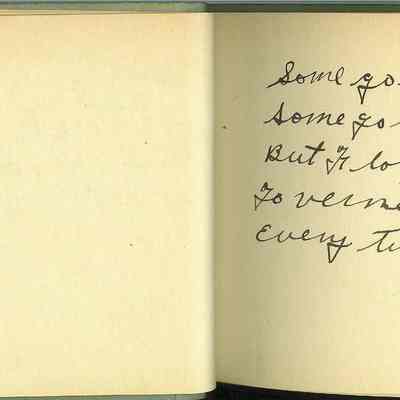 Some go
Some go
But I lo
To verm
Every t